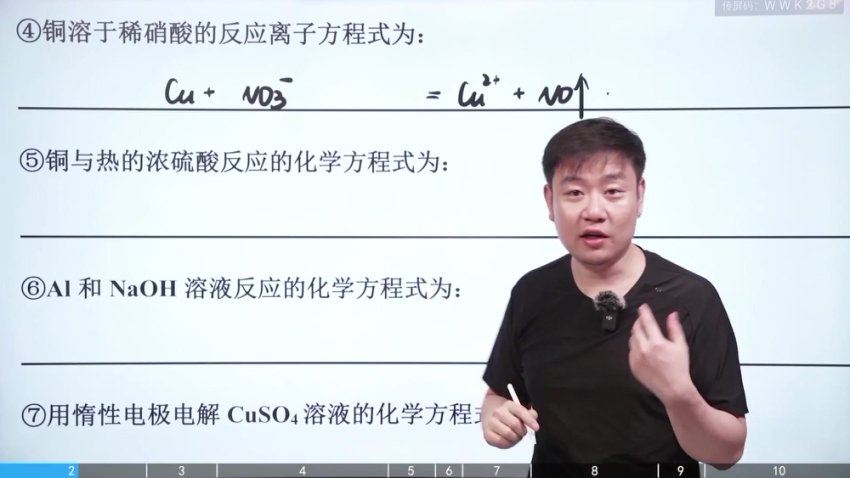 传屏码：WWK2G8
④铜溶于稀硝酸的反应离子方程式为：
Cu + NO₃⁻ = Cu²⁺ + NO↑
⑤铜与热的浓硫酸反应的化学方程式为：
⑥Al 和 NaOH 溶液反应的化学方程式为：
⑦用惰性电极电解 CuSO₄ 溶液的化学方程
2 3 4 5 6 7 8 9 10